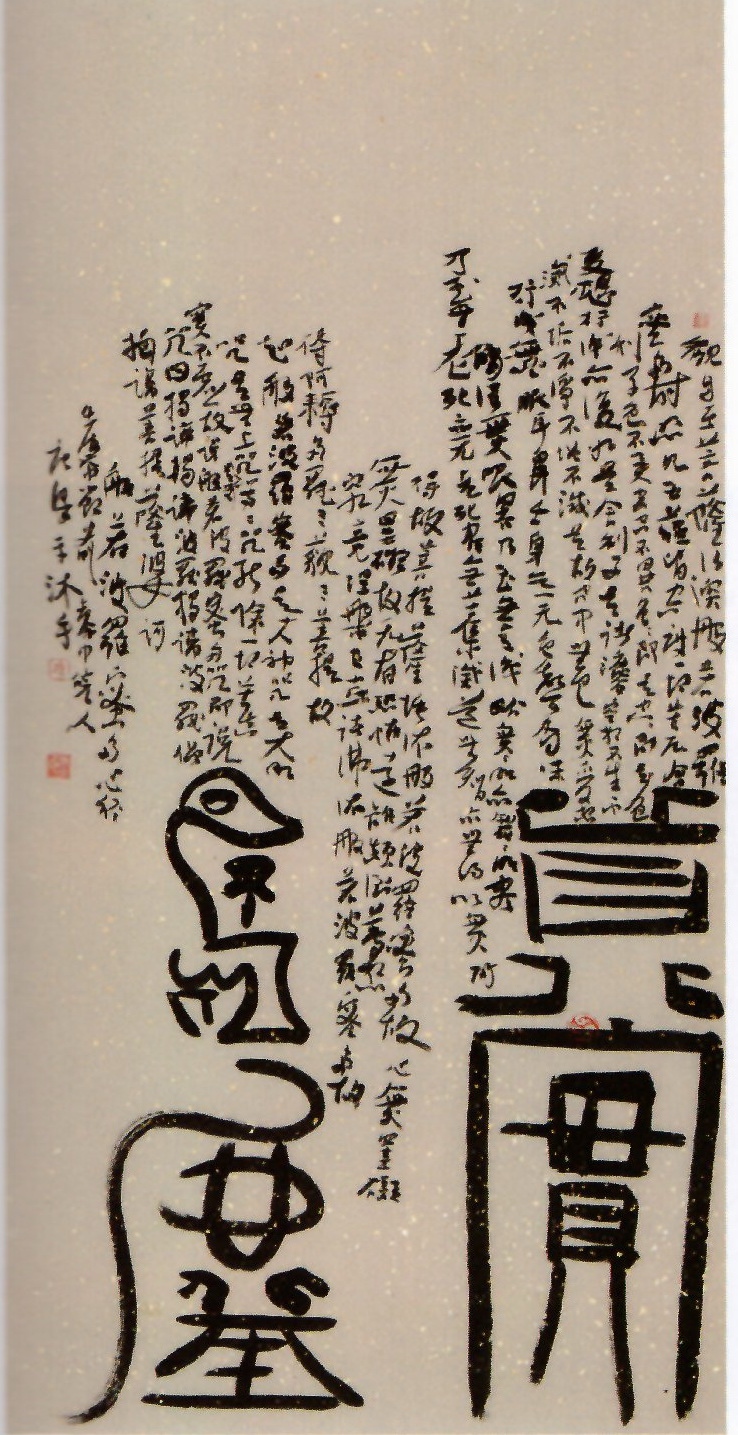 觀自在菩薩行深般若波羅
蜜多時照見五蘊皆空度一切苦厄舍
利子色不異空空不異色色即是空空即是色
受想行識亦復如是舍利子是諸法空相不生不
滅不垢不淨不增不減是故空中無色無受想
行識無眼耳鼻舌身意無色聲香味
觸法無眼界乃至無意識界無無明亦無無明盡
乃至無老死亦無老死盡無苦集滅道無智亦無得以無所
得故菩提薩埵依般若波羅蜜多故心無罣礙
無罣礙故無有恐怖遠離顛倒夢想
究竟涅槃三世諸佛依般若波羅蜜多故
得阿耨多羅三藐三菩提故
知般若波羅蜜多是大神咒是大明
咒是無上咒是無等等咒能除一切苦真
實不虛故說般若波羅蜜多咒即說
咒曰揭諦揭諦波羅揭諦波羅僧
揭諦菩提薩婆訶
般若波羅蜜多心經
真實
不虛